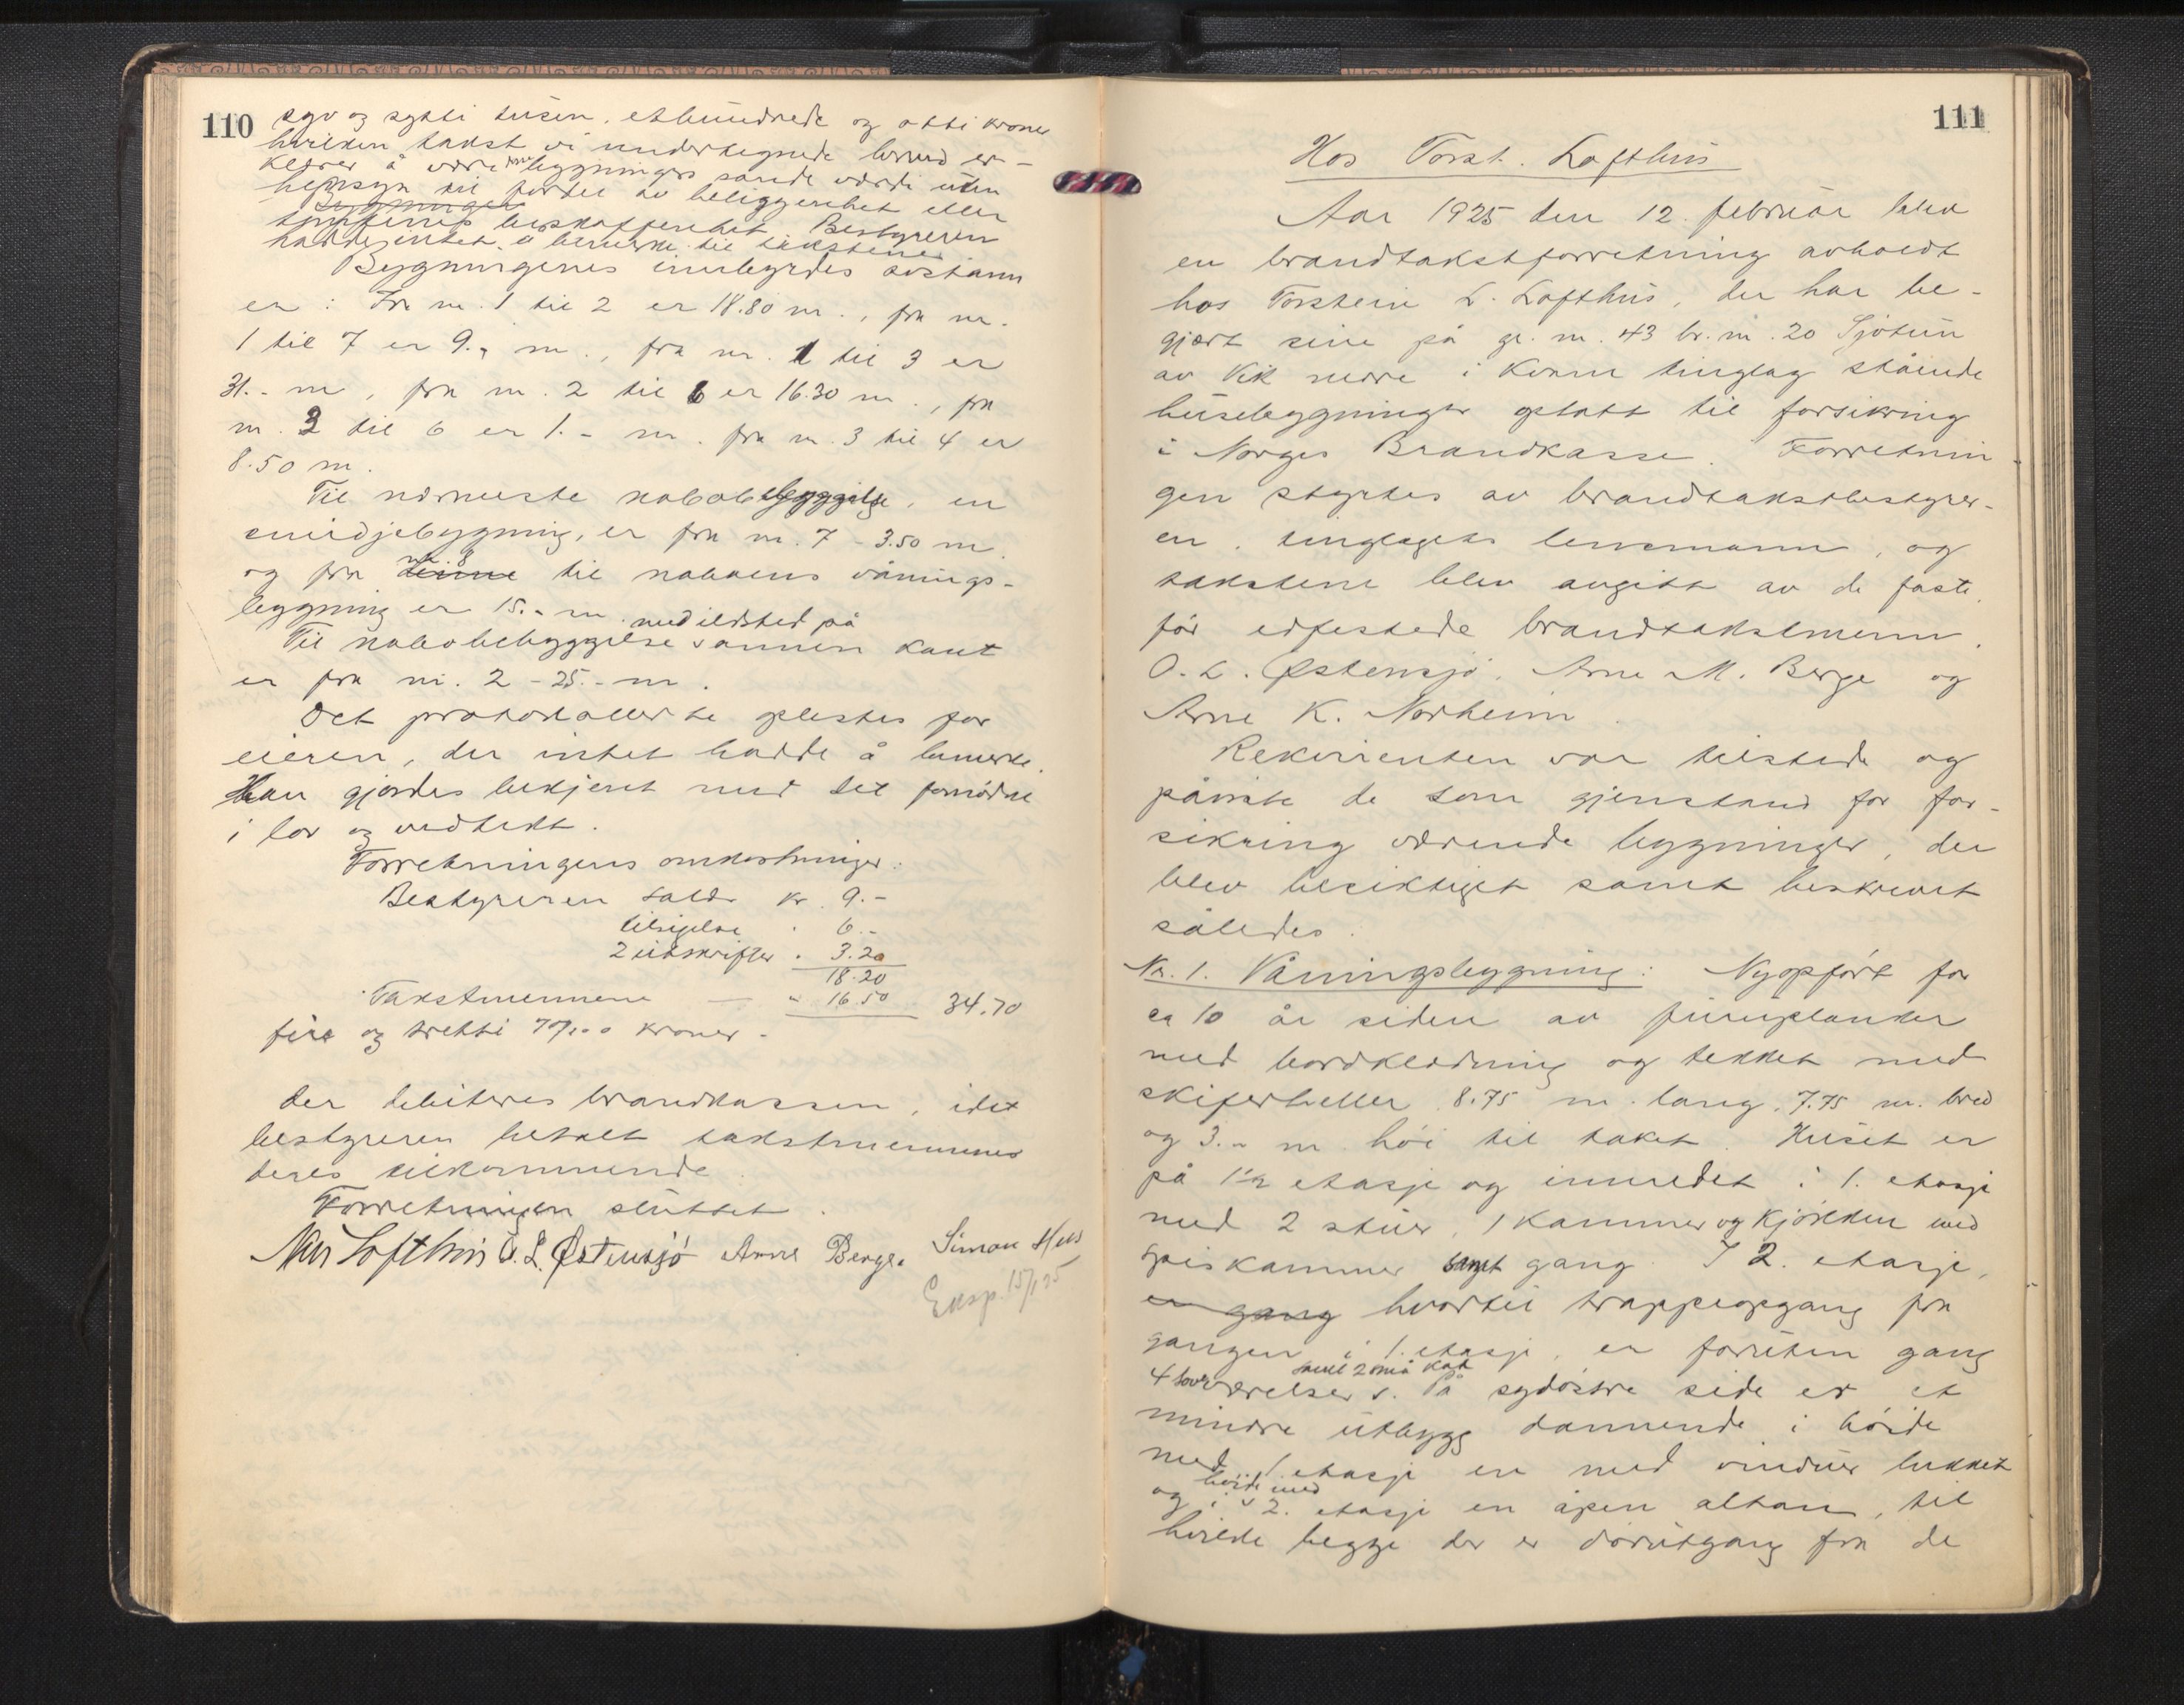 110
syv og sytti tusen, ethundrede og otti kroner
hvilken takst vi undertegnede herved er-
klærer å være bygningers sande værdi uten
hensyn til fordel av beliggenhet eller
bygningen
tomtenes beskaffenhet. Bestyreren
hadde intet å bemerke til takstene.
Bygningenes innbyrdes avstann
er: Fra nr. 1 til 2 er 18.80 m., fra nr.
1 til 7 er 9.- m., fra nr. 1 til 3 er
31.- m, fra nr. 2 til 6 er 16.30 m., fra
nr. 3 til 6 er 1.- m. fra nr. 3 til 4 er
8.50 m.
Til nærmeste nabobebyggelse, en
smidjebygning, er fra nr. 7 - 3.50 m.
og fra denne nr. 8 til naboens vånings-
bygning er 15.- m.
Til nabobebyggelse med ildsted på annen kant
er fra nr. 2 - 25.- m.
Det protokollerte oplestes for
eieren, der intet hadde å bemerke.
Han gjordes bekjent med det fornødne
i lov og vedtekt.
Forretningens omkostninger:
Bestyreren salær kr. 9.-
tilsigelse " 6.-
2 utskrifter " 3.20
18.20
Takstmennene — " 16.50 34.70
fire og tretti 70/100 kroner -
der debiteres brandkassen, idet
bestyreren betalt takstmennenes
deres tilkommende.
Forretningen sluttet.
Nils Lofthus O. L. Østensjö Arne Berge. Simon Hus
Eksp. 15/1 25
111
Hos Torst. Lofthus
Aar 1925 den 12. februar blev
en brandtakstforretning avholdt
hos Torstein L. Lofthus, der har be-
gjært sine på gr. nr. 43 br. nr. 20 Sjøtun
av Vik nedre i Kvam tinglag stående
husebygninger optatt til forsikring
i Norges Brandkasse. Forretnin-
gen styrtes av brandtakstbestyrer-
en, tinglagets lensmann, og
takstene blev avgitt av de faste,
før edfestede brandtakstmenn,
O. L. Østensjø, Arne M. Berge og
Arne K. Norheim.
Rekvirenten var tilstede og
påviste de som gjenstand for for-
sikring værende bygninger, der
blev besiktiget samt beskrevet
således.
Nr. 1. Våningsbygning: Nyopført for
ca 10 år siden av furuplanker
med bordklædning og tekket med
skiferheller 8.75 m. lang, 7.75 m. bred
og 3.- m. høi til taket. Huset er
på 1½ etasje og innredet i 1. etasje
med 2 stuer, 1 kammer og kjøkken med
spiskammer samt gang. I 2. etasje,
er gang hvortil trappeopgang fra
gangen i 1. etasje, er foruten gang
4 soveværelser samt 2 små kot. På sydøstre side er et
mindre utbygg dannende i høide
med 1. etasje en med vinduer lukket
og i høide med 2. etasje en åpen altan, til
hvilde begge der er dørutgang fra de